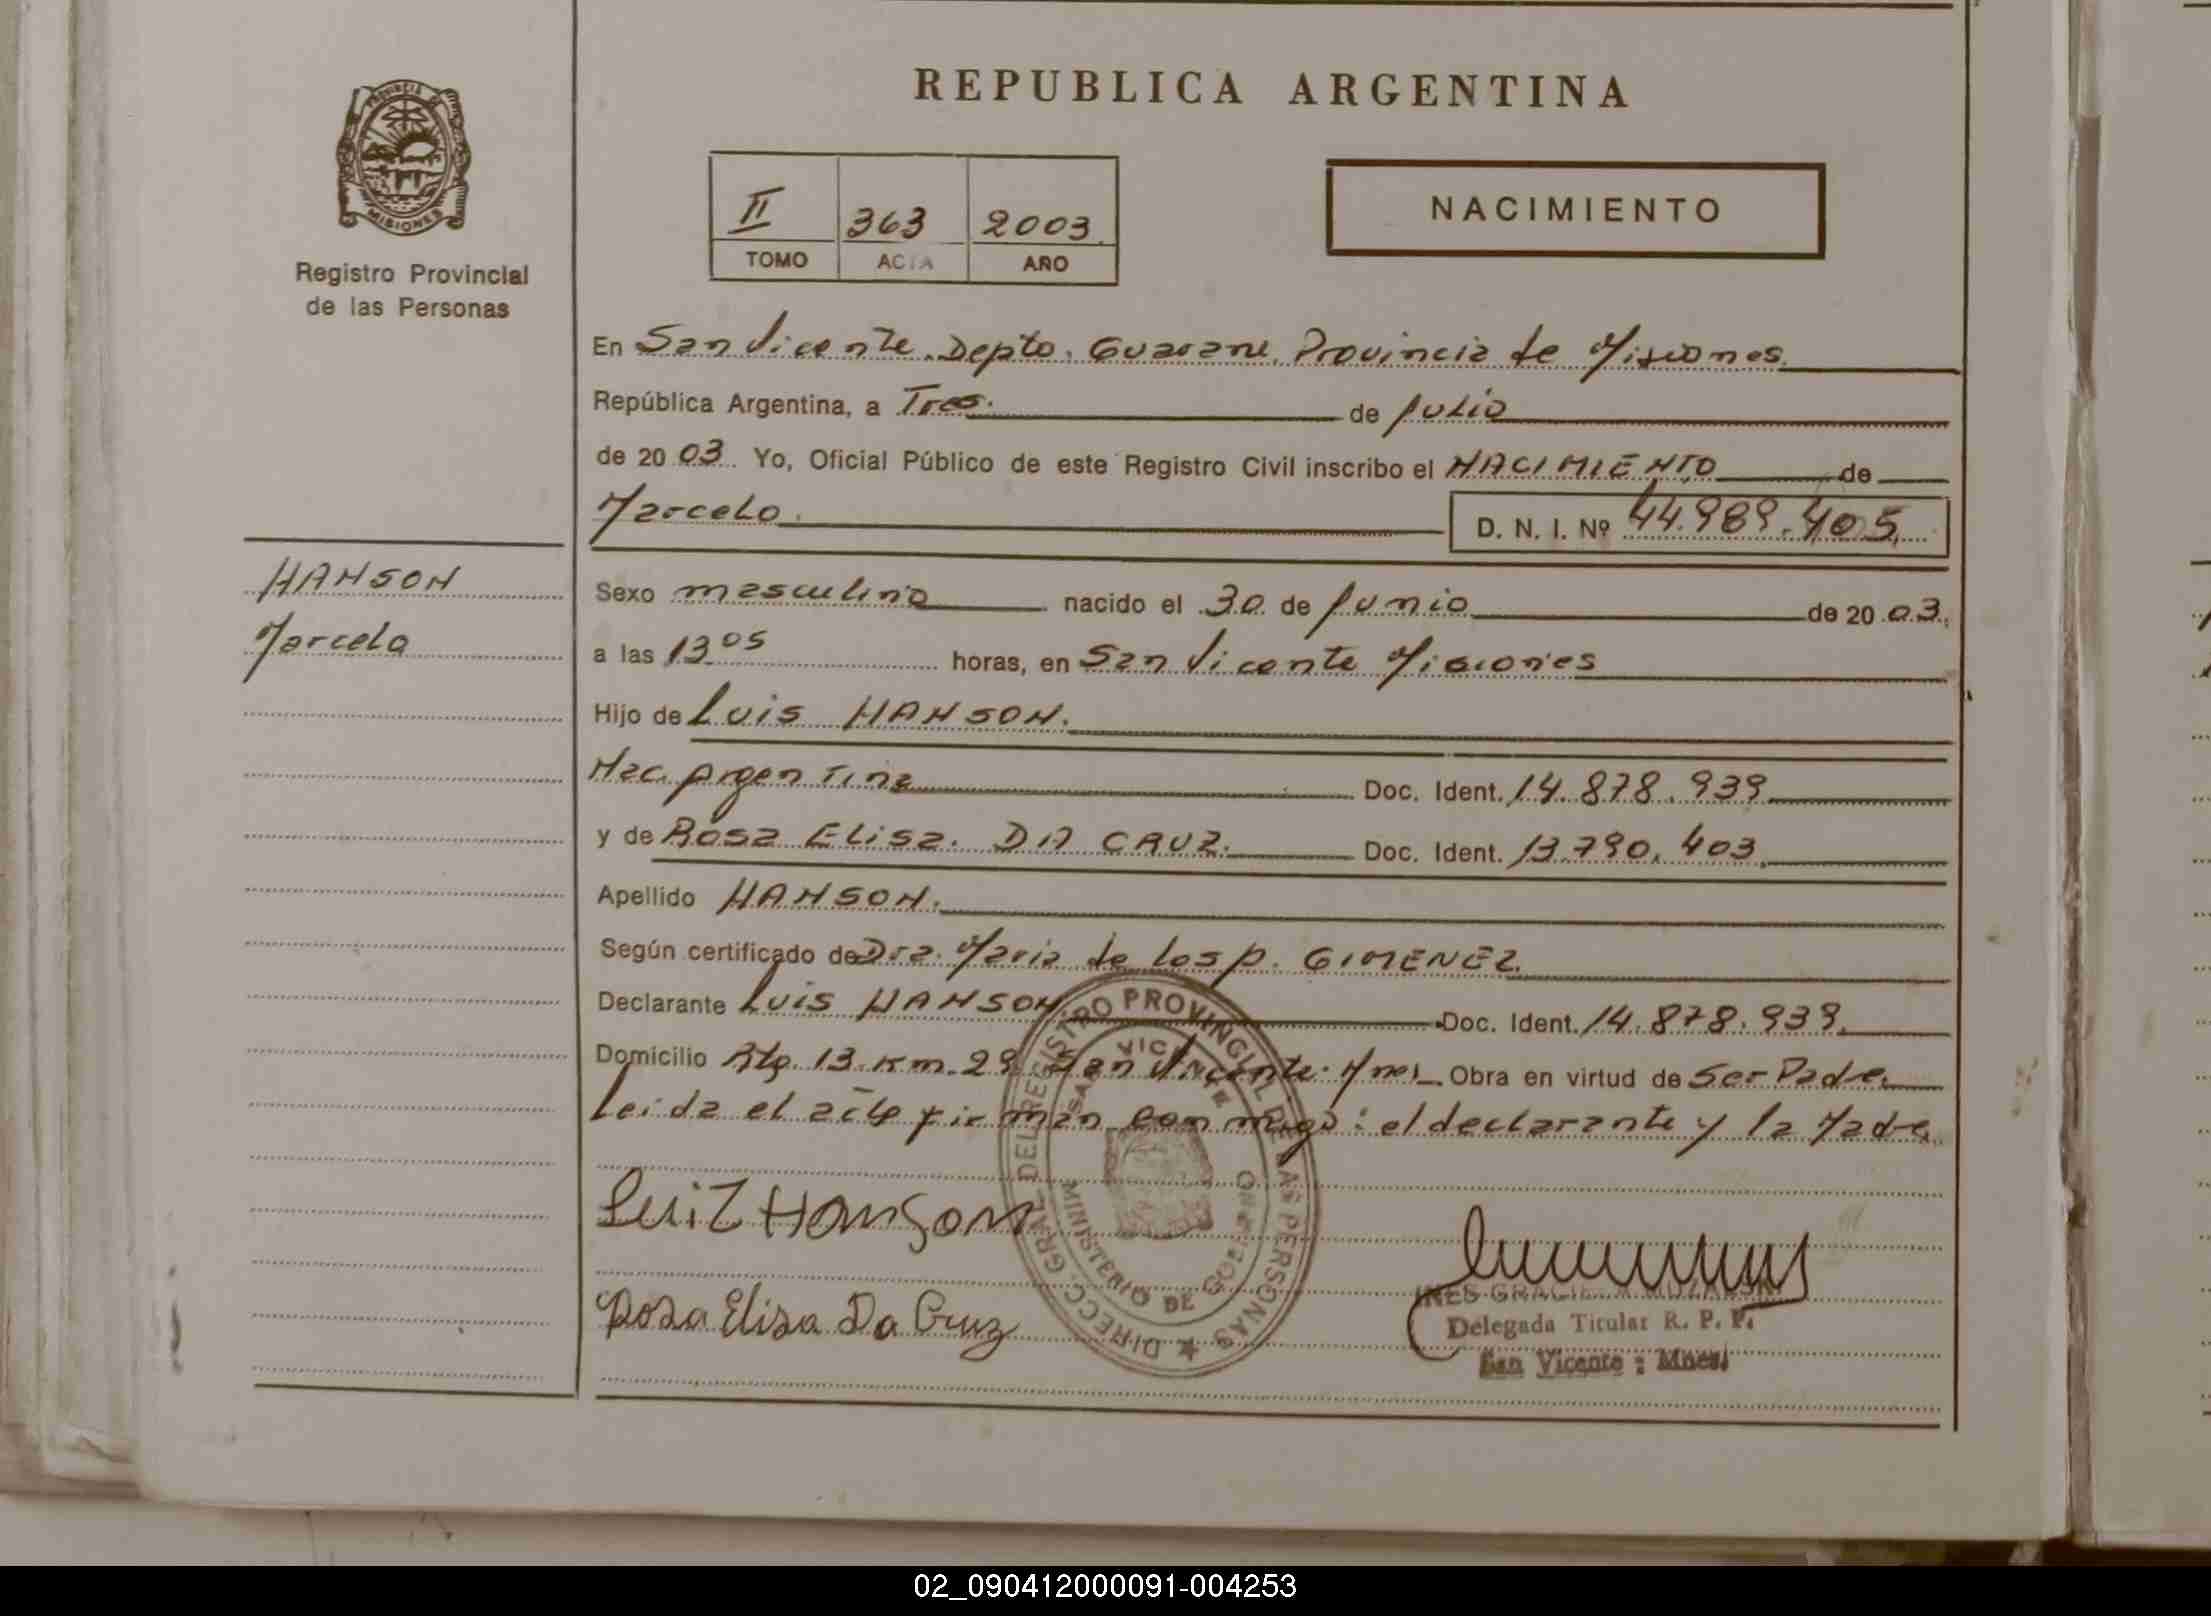 REPUBLICA ARGENTINA
PROVINCIA DE
MISIONES
Registro Provincial
de las Personas
II 363 2003
TOMO ACTA AÑO
NACIMIENTO
En San Vicente. Depto. Guarani, Provincia de Misiones.
República Argentina, a Tres. de Julio
de 2003 Yo, Oficial Público de este Registro Civil inscribo el NACIMIENTO de
Marcelo. D. N. I. Nº 44.989.405
HANSON
Marcelo
Sexo masculino nacido el 30 de Junio de 2003.
a las 13 05 horas, en San Vicente Misiones
Hijo de Luis HANSON.
Nac. Argentina Doc. Ident. 14.878.939
y de Rosa Elisa. DA CRUZ. Doc. Ident. 13.790.403
Apellido HANSON.
Según certificado de Dra. Maria de los p. GIMENEZ
Declarante Luis HANSON Doc. Ident. 14.878.939
Domicilio Rta. 13 Km. 29 San Vicente. Mnes. Obra en virtud de Ser Padre.
Leida el acta firman conmigo: el declarante y la Madre
Luiz Hanson
Rosa Elisa Da Cruz
DIRECC. GRAL. DEL REGISTRO PROVINCIAL DE LAS PERSONAS
SAN VICENTE
MINISTERIO DE GOBIERNO
INES
Delegada Titular R. P. P.
San Vicente : Mnes.
02_090412000091-004253